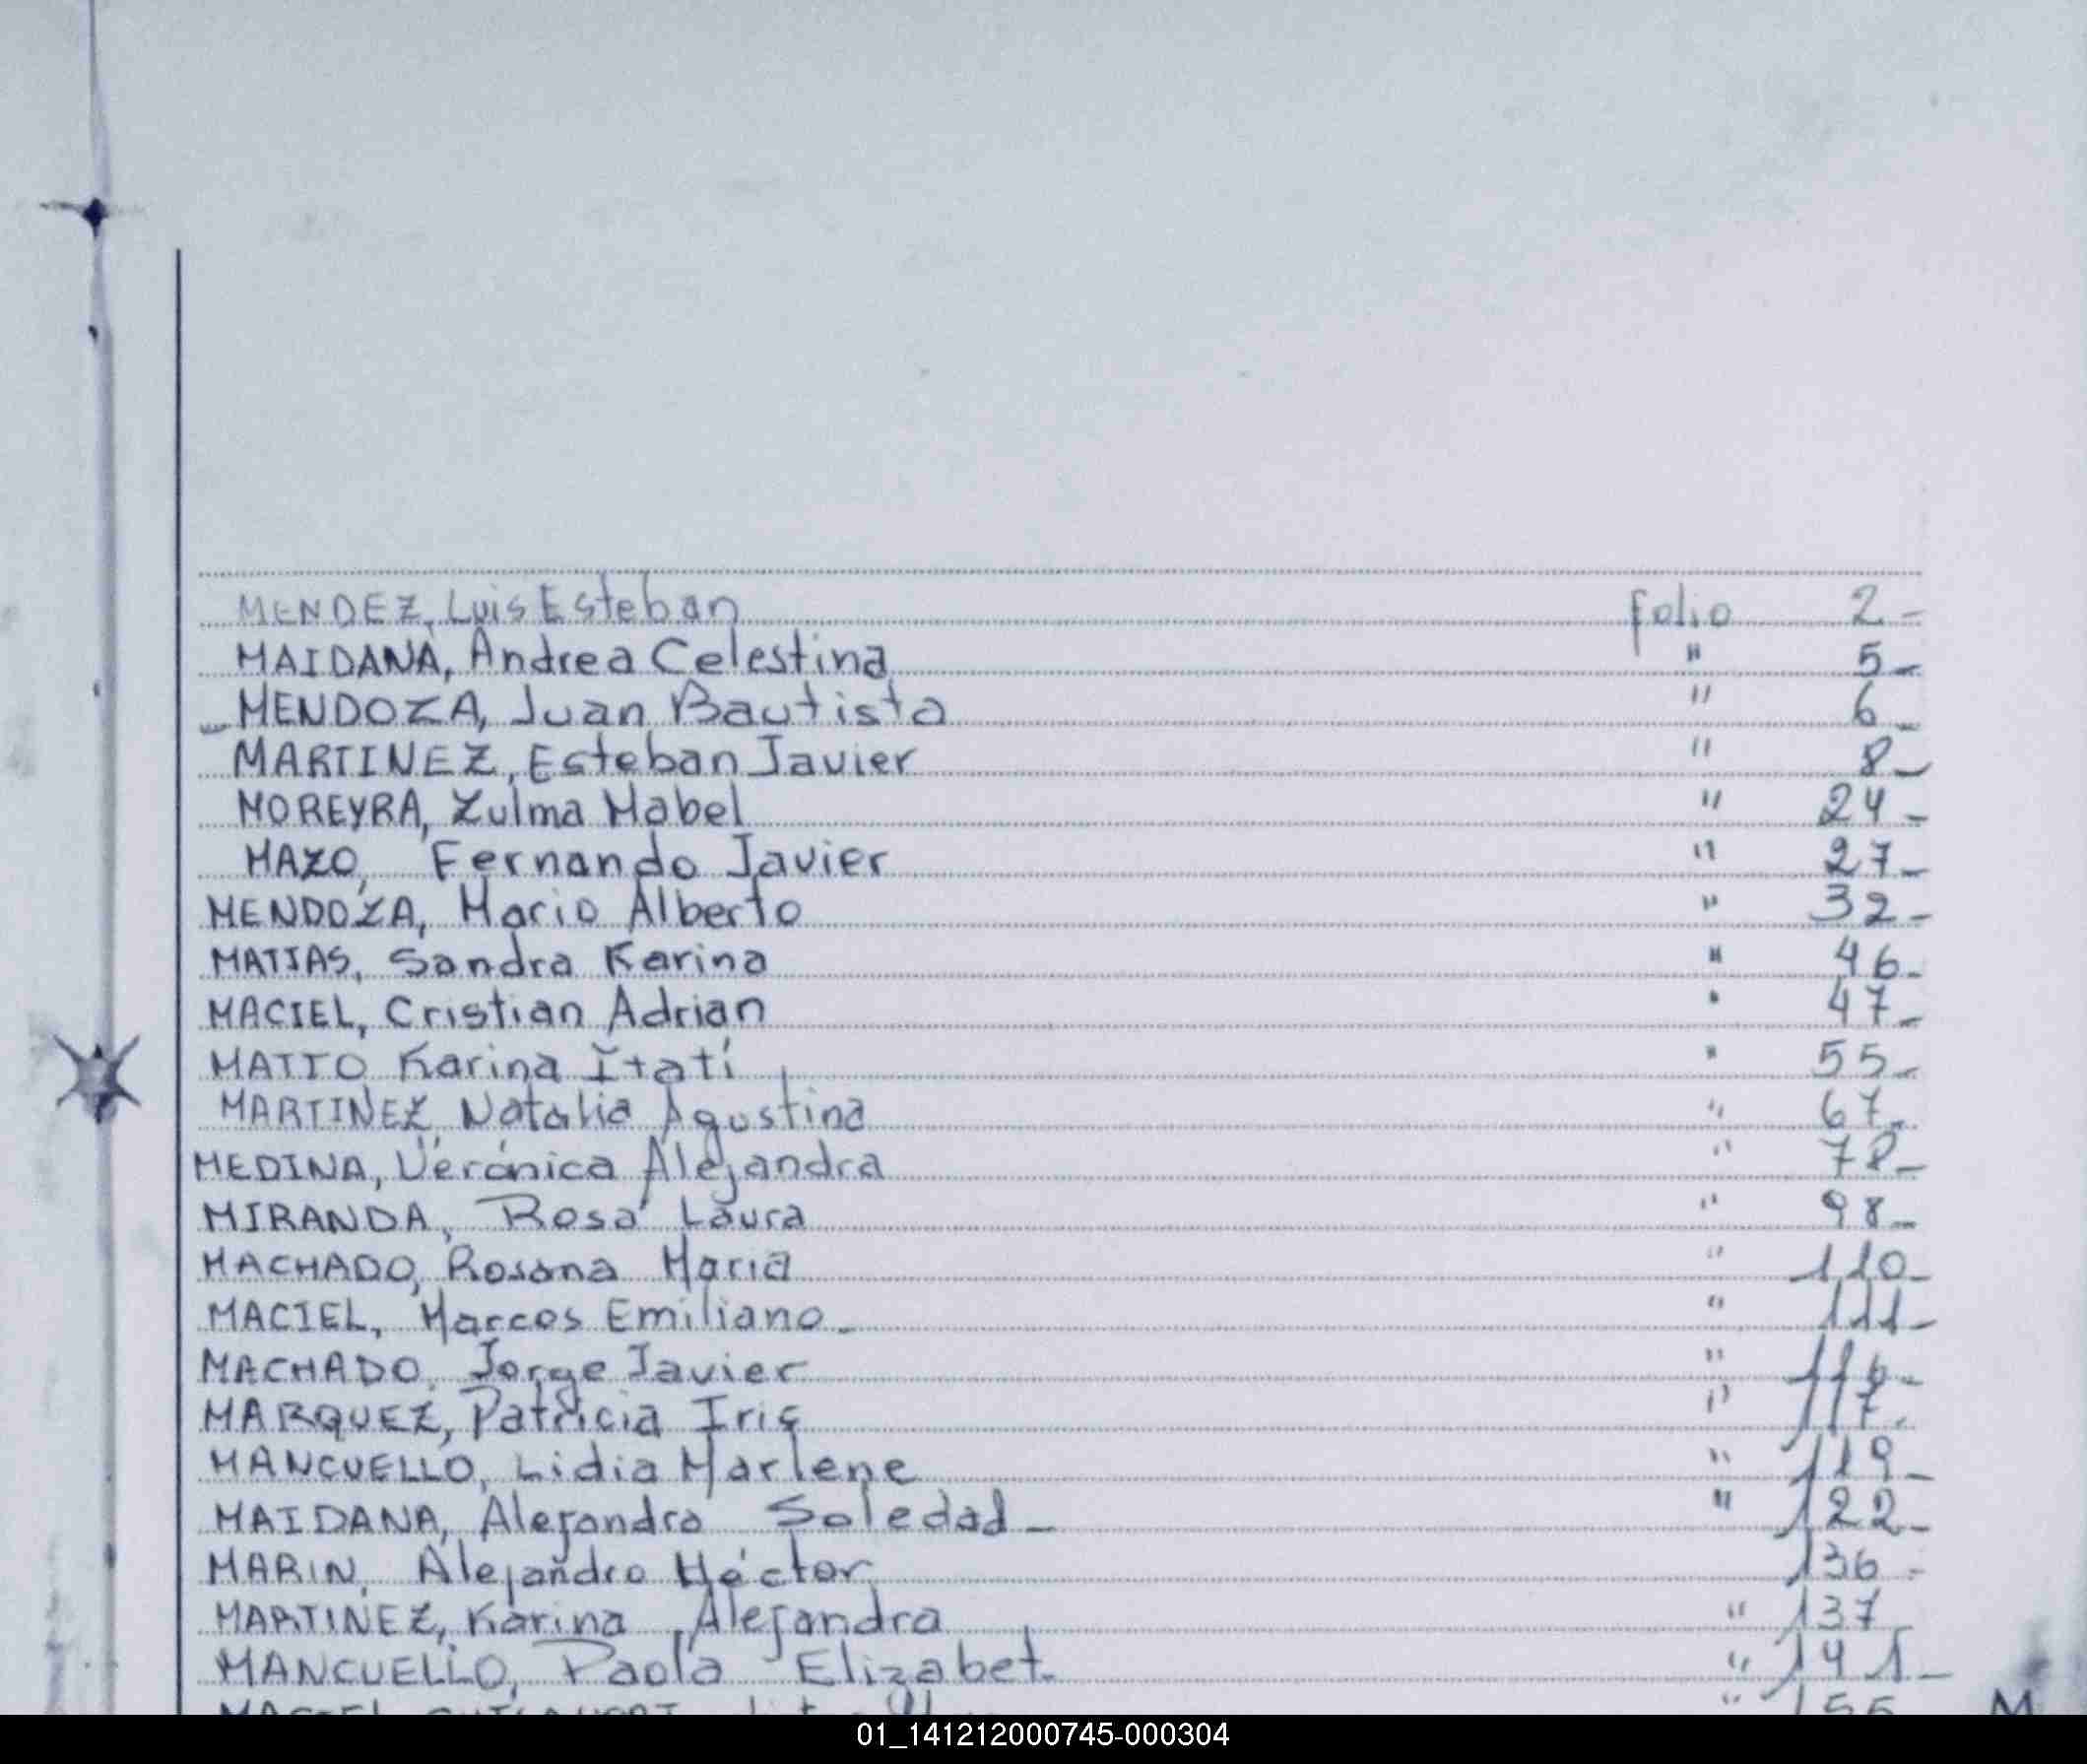 MENDEZ, Luis Esteban folio 2-
MAIDANA, Andrea Celestina " 5-
MENDOZA, Juan Bautista " 6-
MARTINEZ, Esteban Javier " 8-
MOREYRA, Zulma Mabel " 24-
MAZO, Fernando Javier " 27-
MENDOZA, Mario Alberto " 32-
MATIAS, Sandra Karina " 46-
MACIEL, Cristian Adrian " 47-
MATTO Karina Itatí " 55-
MARTINEZ, Natalia Agustina " 67-
MEDINA, Verónica Alejandra " 78-
MIRANDA, Rosa Laura " 98-
MACHADO, Rosana Maria " 110-
MACIEL, Marcos Emiliano- " 111-
MACHADO, Jorge Javier " 116-
MARQUEZ, Patricia Iris " 117.
MANCUELLO, Lidia Marlene " 119-
MAIDANA, Alejandra Soledad- " 122-
MARIN, Alejandro Héctor 136-
MARTINEZ, Karina Alejandra " 137
MANCUELLO, Paola Elizabet- " 141-
MACIEL " 155 M
01_141212000745-000304